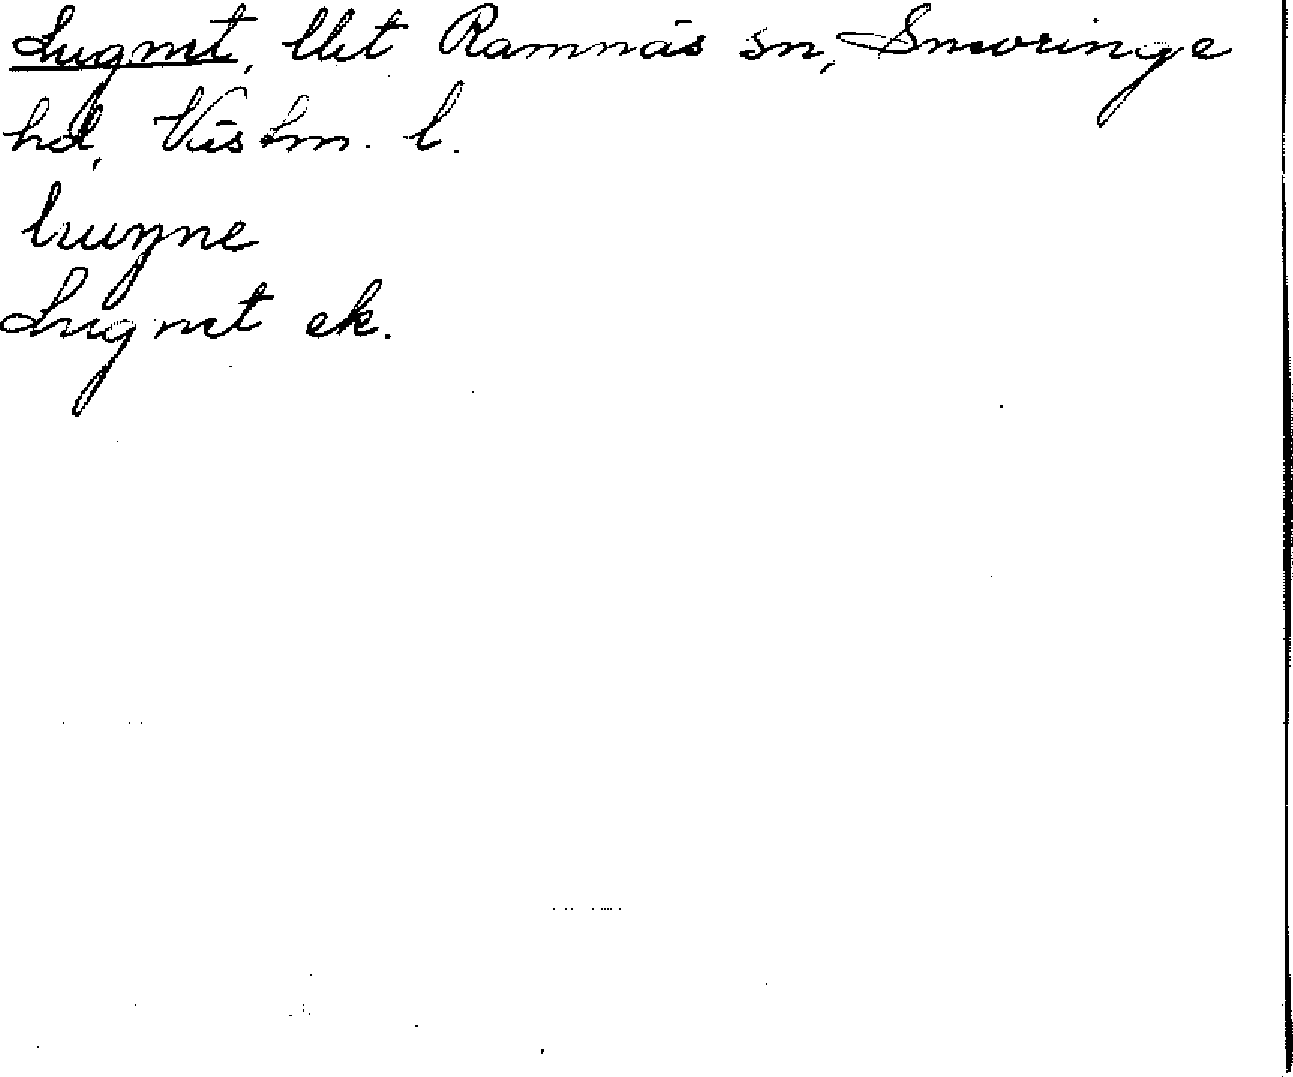 Lugnet, lht Ramnäs sn, Snevringe
hd, Västm. l.
luŋne
Lugnet ek.